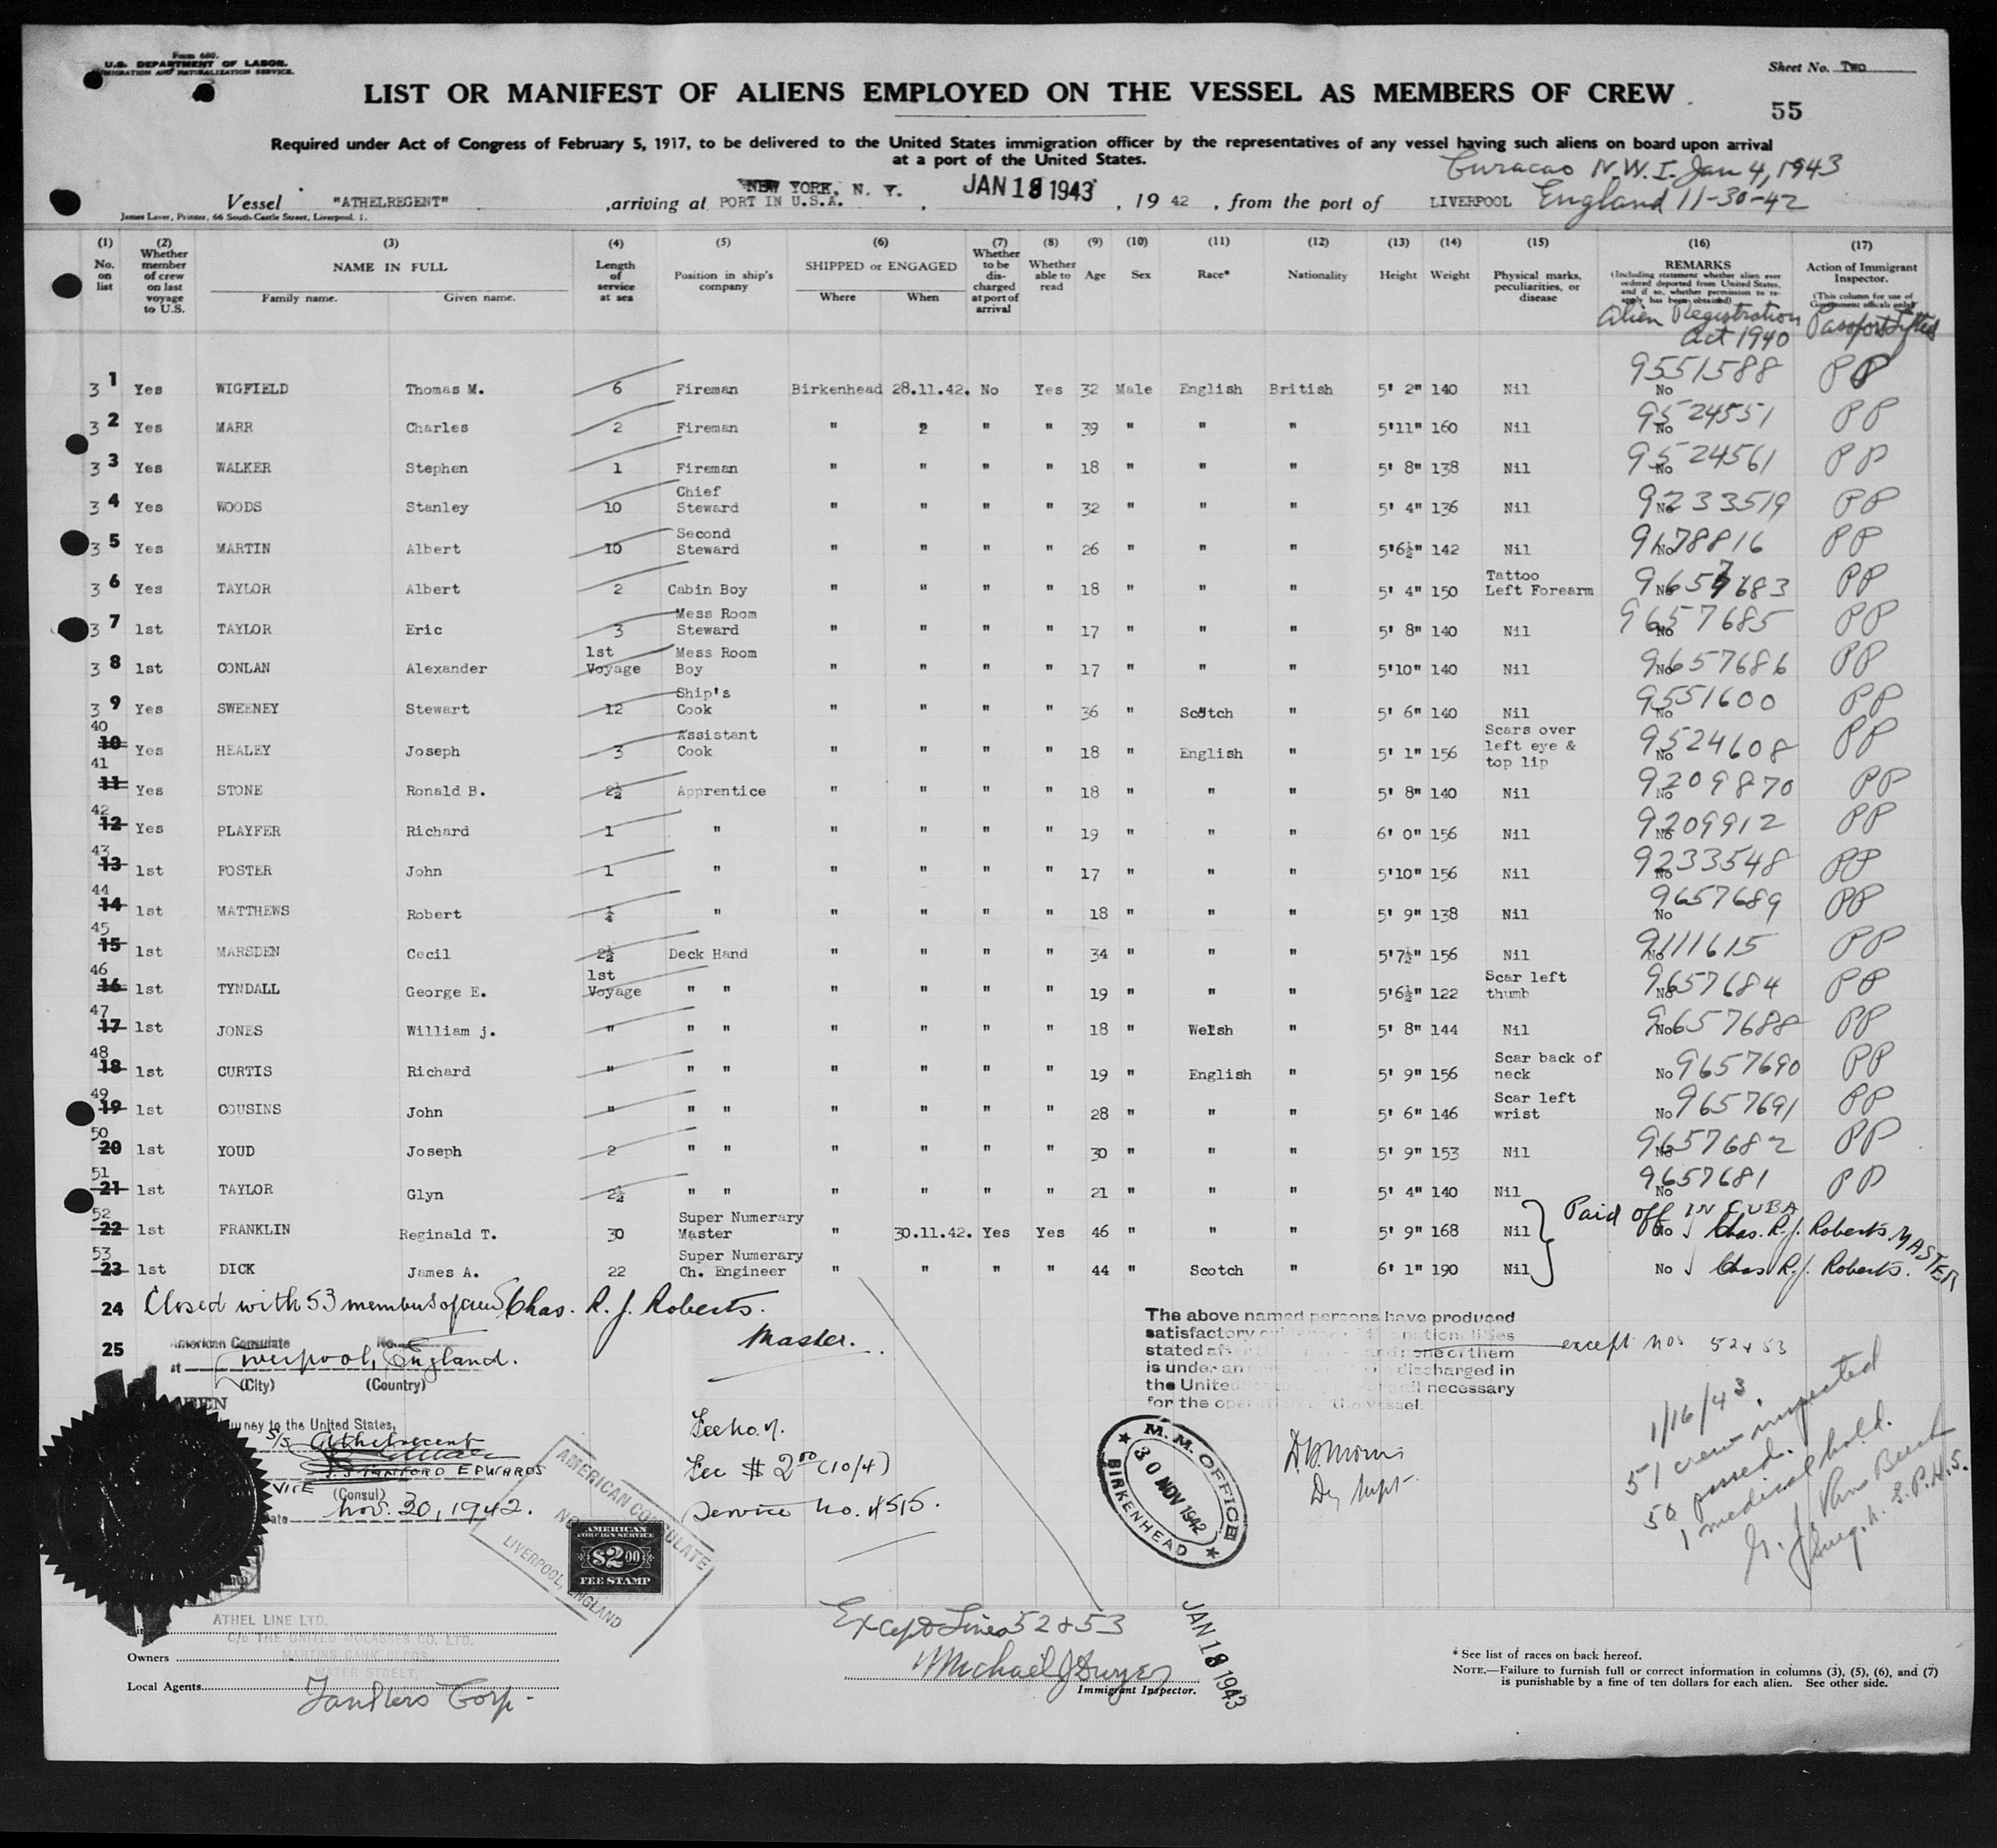 Form 680.
U.S. DEPARTMENT OF LABOR.
IMMIGRATION AND NATURALIZATION SERVICE.
Sheet No. Two
LIST OR MANIFEST OF ALIENS EMPLOYED ON THE VESSEL AS MEMBERS OF CREW
55
Required under Act of Congress of February 5, 1917, to be delivered to the United States immigration officer by the representatives of any vessel having such aliens on board upon arrival
at a port of the United States.
Curacao N.W.I. Jan 4, 1943
NEW YORK, N. Y. JAN 18 1943
Vessel "ATHELREGENT" , arriving at PORT IN U.S.A. , 19 42 , from the port of LIVERPOOL England 11-30-42
James Laver, Printer, 66 South Castle Street, Liverpool. 1.
(1) No. on list
(2) Whether member of crew on last voyage to U.S.
(3) NAME IN FULL Family name. Given name.
(4) Length of service at sea
(5) Position in ship's company
(6) SHIPPED or ENGAGED Where When
(7) Whether to be discharged at port of arrival
(8) Whether able to read
(9) Age
(10) Sex
(11) Race*
(12) Nationality
(13) Height
(14) Weight
(15) Physical marks, peculiarities, or disease
(16) REMARKS (Including statement whether alien ever ordered deported from United States, and if so, whether permission to re-apply has been obtained)
Alien Registration Act 1940
(17) Action of Immigrant Inspector. (This column for use of Government officials only)
Passport Lifted
3 1 Yes WIGFIELD Thomas M. 6 Fireman Birkenhead 28.11.42. No Yes 32 Male English British 5' 2" 140 Nil No 9551588 PP
3 2 Yes MARR Charles 2 Fireman " " " " 39 " " " 5'11" 160 Nil No 9524551 PP
3 3 Yes WALKER Stephen 1 Fireman " " " " 18 " " " 5' 8" 138 Nil No 9524561 PP
3 4 Yes WOODS Stanley 10 Chief Steward " " " " 32 " " " 5' 4" 136 Nil No 9233519 PP
3 5 Yes MARTIN Albert 10 Second Steward " " " " 26 " " " 5'6½" 142 Nil No 9178816 PP
3 6 Yes TAYLOR Albert 2 Cabin Boy " " " " 18 " " " 5' 4" 150 Tattoo Left Forearm No 9657683 PP
3 7 1st TAYLOR Eric 3 Mess Room Steward " " " " 17 " " " 5' 8" 140 Nil No 9657685 PP
3 8 1st CONLAN Alexander 1st Voyage Mess Room Boy " " " " 17 " " " 5'10" 140 Nil No 9657686 PP
3 9 Yes SWEENEY Stewart 12 Ship's Cook " " " " 36 " Scotch " 5' 6" 140 Nil No 9551600 PP
40 10 Yes HEALEY Joseph 3 Assistant Cook " " " " 18 " English " 5' 1" 156 Scars over left eye & top lip No 9524608 PP
41 11 Yes STONE Ronald B. 2½ Apprentice " " " " 18 " " " 5' 8" 140 Nil No 9209870 PP
42 12 Yes PLAYFER Richard 1 " " " " " 19 " " " 6' 0" 156 Nil No 9209912 PP
43 13 1st FOSTER John 1 " " " " " 17 " " " 5'10" 156 Nil No 9233548 PP
44 14 1st MATTHEWS Robert ¼ " " " " " 18 " " " 5' 9" 138 Nil No 9657689 PP
45 15 1st MARSDEN Cecil 2½ Deck Hand " " " " 34 " " " 5'7½" 156 Nil No 9111615 PP
46 16 1st TYNDALL George E. 1st Voyage " " " " " " 19 " " " 5'6½" 122 Scar left thumb No 9657684 PP
47 17 1st JONES William j. " " " " " " " 18 " Welsh " 5' 8" 144 Nil No 9657688 PP
48 18 1st CURTIS Richard " " " " " " " 19 " English " 5' 9" 156 Scar back of neck No 9657690 PP
49 19 1st COUSINS John " " " " " " " 28 " " " 5' 6" 146 Scar left wrist No 9657691 PP
50 20 1st YOUD Joseph 2 " " " " " " 30 " " " 5' 9" 153 Nil No 9657682 PP
51 21 1st TAYLOR Glyn 2½ " " " " " " 21 " " " 5' 4" 140 Nil No 9657681 PP
52 22 1st FRANKLIN Reginald T. 30 Super Numerary Master " 30.11.42. Yes Yes 46 " " " 5' 9" 168 Nil No Paid off IN CUBA Chas. R. J. Roberts. MASTER
53 23 1st DICK James A. 22 Super Numerary Ch. Engineer " " " " 44 " Scotch " 6' 1" 190 Nil No Chas R. J. Roberts.
24 Closed with 53 members of crew Chas. R. J. Roberts.
Master.
25 American Consulate No.
at Liverpool, England.
(City) (Country)
The above named persons have produced
satisfactory nationalities
stated and none of them
is under discharged in
the United necessary
for the vessel.
except nos 52 & 53
journey to the United States,
S/S Athelregent
S. STANFORD EDWARDS
VICE (Consul)
Date Nov. 30, 1942.
Fee No. 4.
Fee $ 2.00 (10/4)
Service No. 4515.
AMERICAN CONSULATE
LIVERPOOL, ENGLAND
AMERICAN
FOREIGN SERVICE
$2.00
FEE STAMP
M. M. OFFICE
30 NOV 1942
BIRKENHEAD
1/16/43.
51 crew inspected
50 passed.
1 medical hold.
ATHEL LINE LTD.
C/o THE UNITED MOLASSES CO. LTD.
MARTINS BANK BLDGS.
WATER STREET,
Owners
Local Agents
Except Lines 52 & 53
Michael J Dwyer
Immigrant Inspector.
JAN 18 1943
* See list of races on back hereof.
NOTE.—Failure to furnish full or correct information in columns (3), (5), (6), and (7)
is punishable by a fine of ten dollars for each alien. See other side.